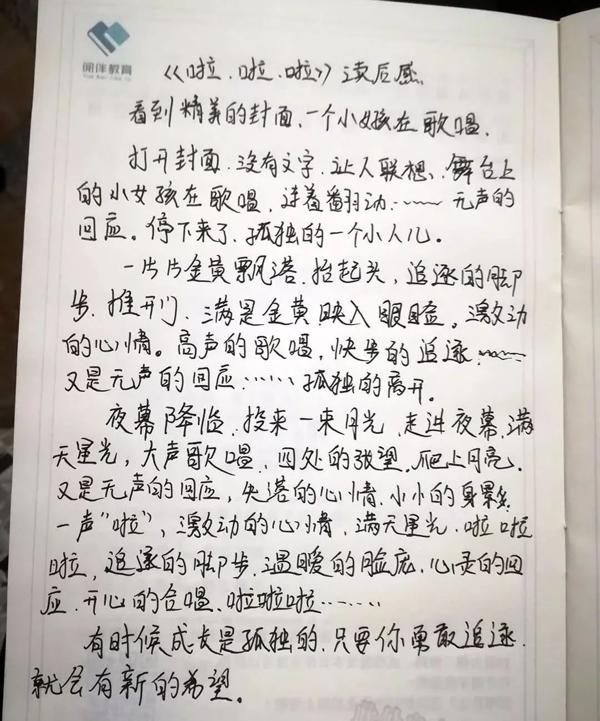 阅伴教育
《啦、啦、啦》读后感
看到精美的封面、一个小女孩在歌唱、
打开封面、没有文字、让人联想、舞台上
的小女孩在歌唱、连着翻动……无声的
回应。停下来了、孤独的一个小人儿。
一片片金黄飘落、抬起头，追逐的脚
步、推开门、满是金黄映入眼睑。激动
的心情。高声的歌唱，快步的追逐……
又是无声的回应……孤独的离开。
夜幕降临、投来一束月光、走进夜幕、满
天星光，大声歌唱、四处的张望、爬上月亮、
又是无声的回应，失落的心情、小小的身影
一声“啦”，激动的心情，满天星光、啦啦
啦，追逐的脚步、温暖的脸庞、心灵的回
应、开心的合唱、啦啦啦……
有时候成长是孤独的、只要你勇敢追逐、
就会有新的希望。